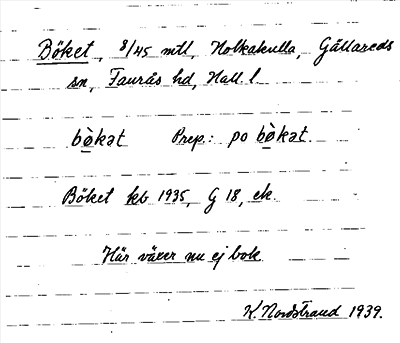 Böket, 8/45 mtl, Holkakulla, Gällareds
sn, Faurås hd, Hall. l.
bò̤kət Prep.: po bò̤kət.
Böket kb 1935, G 18, ek.
Här växer nu ej bok.
K. Nordstrand 1939.